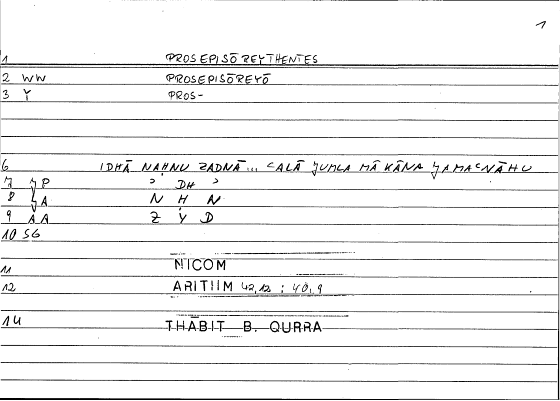 1
1 PROSEPISŌREYTHENTES
2 WW PROSEPISŌREYŌ
3 Y PROS-
6 IDHĀ NAḤNU ZADNĀ... ʿALĀ JUMLA MĀ KĀNA JAMAʿNĀHU
7 JP ʾ DH ʾ
8 JA N Ḥ N
9 AA Z Y D
10 SG
11 NICOM
12 ARITIIM 42,12 ; 40,9
14 THĀBIT B. QURRA